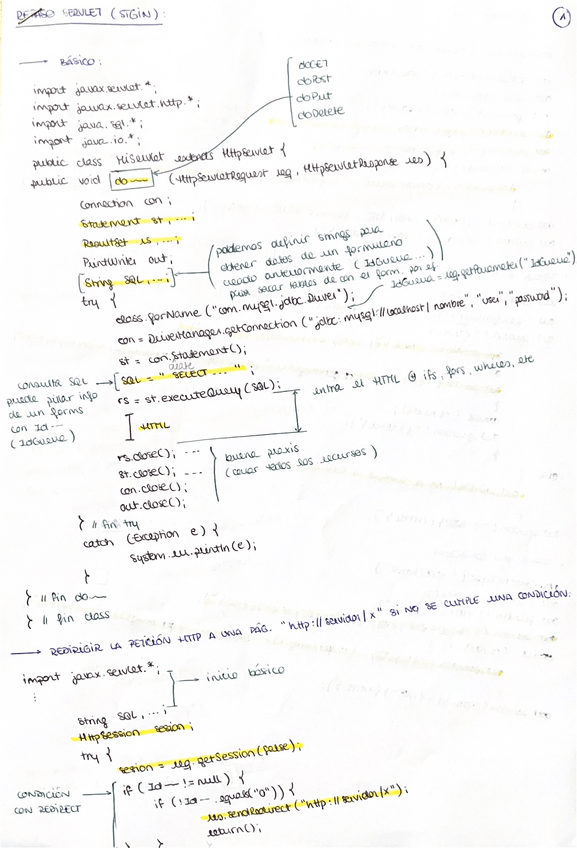 REPASO SERVLET (SIGIN):
1
→ BÁSICO:
doGET
doPost
doPut
doDelete
import javax.servlet.*;
import javax.servlet.http.*;
import java.sql.*;
import java.io.*;
public class MiServlet extends HttpServlet {
public void do~~ (HttpServletRequest req, HttpServletResponse res) {
Connection con;
Statement st, ...;
ResultSet rs, ...;
PrintWriter out,
String SQL, ...;
podemos definir strings para
obtener datos de un formulario
creado anteriormente (IdGueva...)
para sacar tablas de con el form. por ej.
IdGueva = req.getParameter("IdGueva")
try {
class.forName ("com.mysql.jdbc.Driver");
con = DriverManager.getConnection ("jdbc:mysql://localhost/nombre", "user", "password");
st = con.Statement();
create
SQL = "SELECT ... ";
rs = st.executeQuery (SQL);
consulta SQL
puede pillar info
de un forms
con Id---
(IdGueva)
entra el HTML @ ifs, fors, whiles, etc
HTML
rs.close(); ...
st.close(); ...
con.close();
out.close();
buena praxis
(cerrar todos los recursos)
} // fin try
catch (Exception e) {
System.err.println(e);
}
} // fin do~~
} // fin class
→ REDIRIGIR LA PETICIÓN HTTP A UNA PÁG. "http://servidor/x" SI NO SE CUMPLE UNA CONDICIÓN.
import javax.servlet.*;
⋮
inicio básico
String SQL, ...;
HttpSession sesion;
try {
sesion = req.getSession(false);
CONDICIÓN
CON REDIRECT
if (Id~~ != null) {
if (!Id~~.equals("0")) {
res.sendRedirect("http://servidor/x");
return();
} }